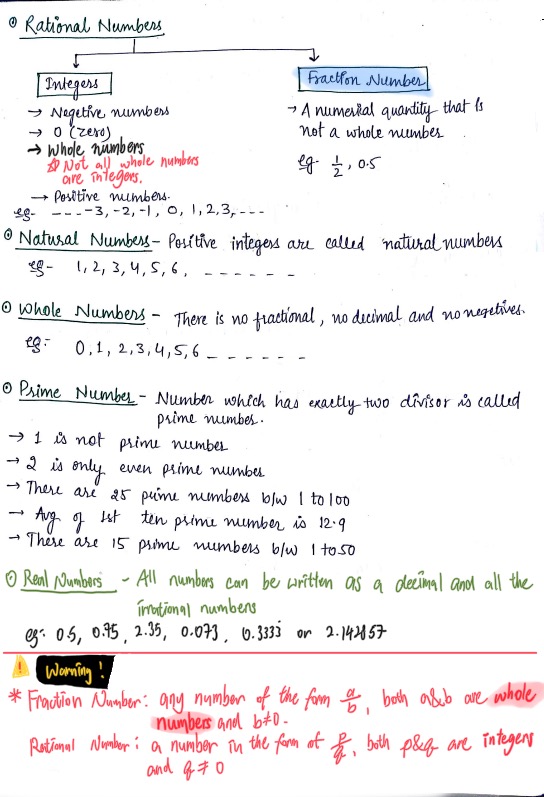 Rational Numbers
Integers
→ Negetive numbers
→ 0 (zero)
→ Whole numbers
Not all whole numbers
are integers.
→ Positive numbers.
eg- ----3, -2, -1, 0, 1, 2, 3, ---
Fraction Number
→ A numerical quantity that is
not a whole number
eg- 1/2, 0.5
Natural Numbers - Positive integers are called natural numbers
eg- 1, 2, 3, 4, 5, 6, ------
Whole Numbers - There is no fractional, no decimal and no negetives.
eg:- 0, 1, 2, 3, 4, 5, 6 ------
Prime Number - Number which has exactly two divisor is called
prime number.
→ 1 is not prime number
→ 2 is only even prime number
→ There are 25 prime numbers b/w 1 to 100
→ Avg of 1st ten prime number is 12.9
→ There are 15 prime numbers b/w 1 to 50
Real Numbers - All numbers can be written as a decimal and all the
irrational numbers
eg:- 0.5, 0.75, 2.35, 0.073, 0.3333 or 2.142857
Warning!
* Fraction Number: any number of the form a/b, both a&b are whole
numbers and b≠0.
Rational Number: a number in the form of p/q, both p&q are integers
and q≠0